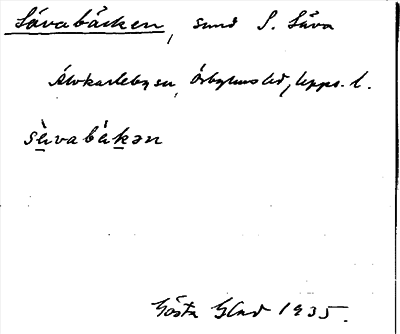 Sävabäcken, sund S. Säva
Älvkarleby sn, Örbyhus hd, Upps. l.
sàvabàkən
Gösta Glad 1935.